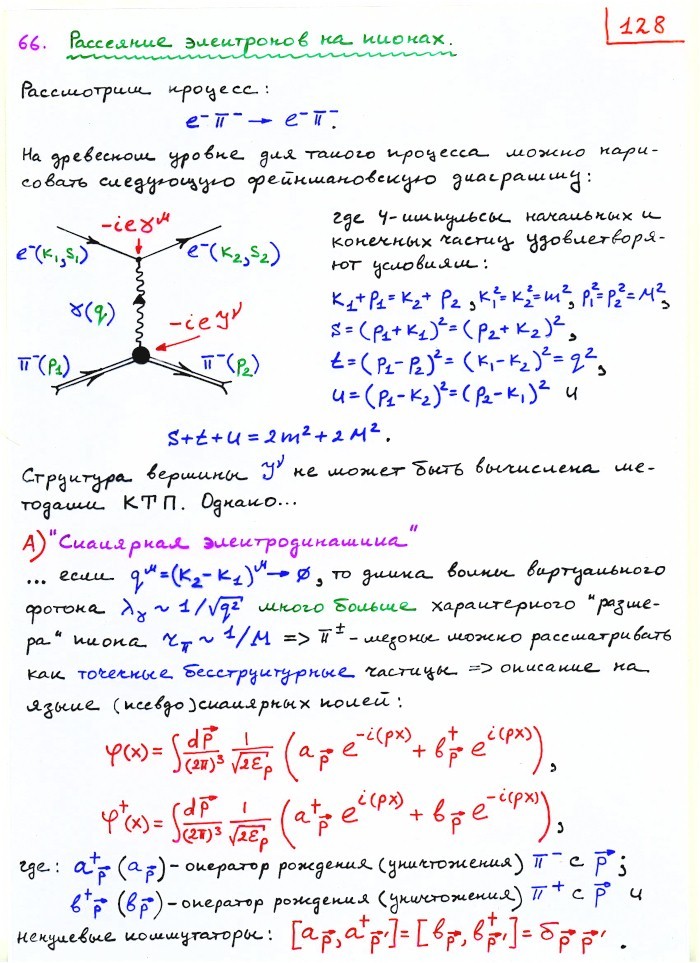 128
66. Рассеяние электронов на пионах.
Рассмотрим процесс:
e⁻π⁻ → e⁻π⁻.
На древесном уровне для такого процесса можно нари-
совать следующую фейнмановскую диаграмму:
-ieγ^μ
e⁻(k₁,s₁) e⁻(k₂,s₂)
γ(q)
-ie𝒴^ν
π⁻(p₁) π⁻(p₂)
где 4-импульсы начальных и
конечных частиц удовлетворя-
ют условиям:
k₁+p₁=k₂+p₂, k₁²=k₂²=m², p₁²=p₂²=M²,
s=(p₁+k₁)²=(p₂+k₂)²,
t=(p₁-p₂)²=(k₁-k₂)²=q²,
u=(p₁-k₂)²=(p₂-k₁)² и
s+t+u=2m²+2M².
Структура вершины 𝒴^ν не может быть вычислена ме-
тодами КТП. Однако...
А) "Скалярная электродинамика"
... если q^μ=(k₂-k₁)^μ → ∅, то длина волны виртуального
фотона λ_γ ~ 1/√q² много больше характерного "разме-
ра" пиона r_π ~ 1/M => π^±-мезоны можно рассматривать
как точечные бесструктурные частицы => описание на
языке (псевдо)скалярных полей:
φ(x)=∫ dp⃗/(2π)³ 1/√(2ε_p) (a_p⃗ e^{-i(px)} + b⁺_p⃗ e^{i(px)}),
φ⁺(x)=∫ dp⃗/(2π)³ 1/√(2ε_p) (a⁺_p⃗ e^{i(px)} + b_p⃗ e^{-i(px)}),
где: a⁺_p⃗ (a_p⃗) - оператор рождения (уничтожения) π⁻ с p⃗;
b⁺_p⃗ (b_p⃗) - оператор рождения (уничтожения) π⁺ с p⃗ и
ненулевые коммутаторы: [a_p⃗, a⁺_p⃗']=[b_p⃗, b⁺_p⃗']=δ_p⃗p⃗'.